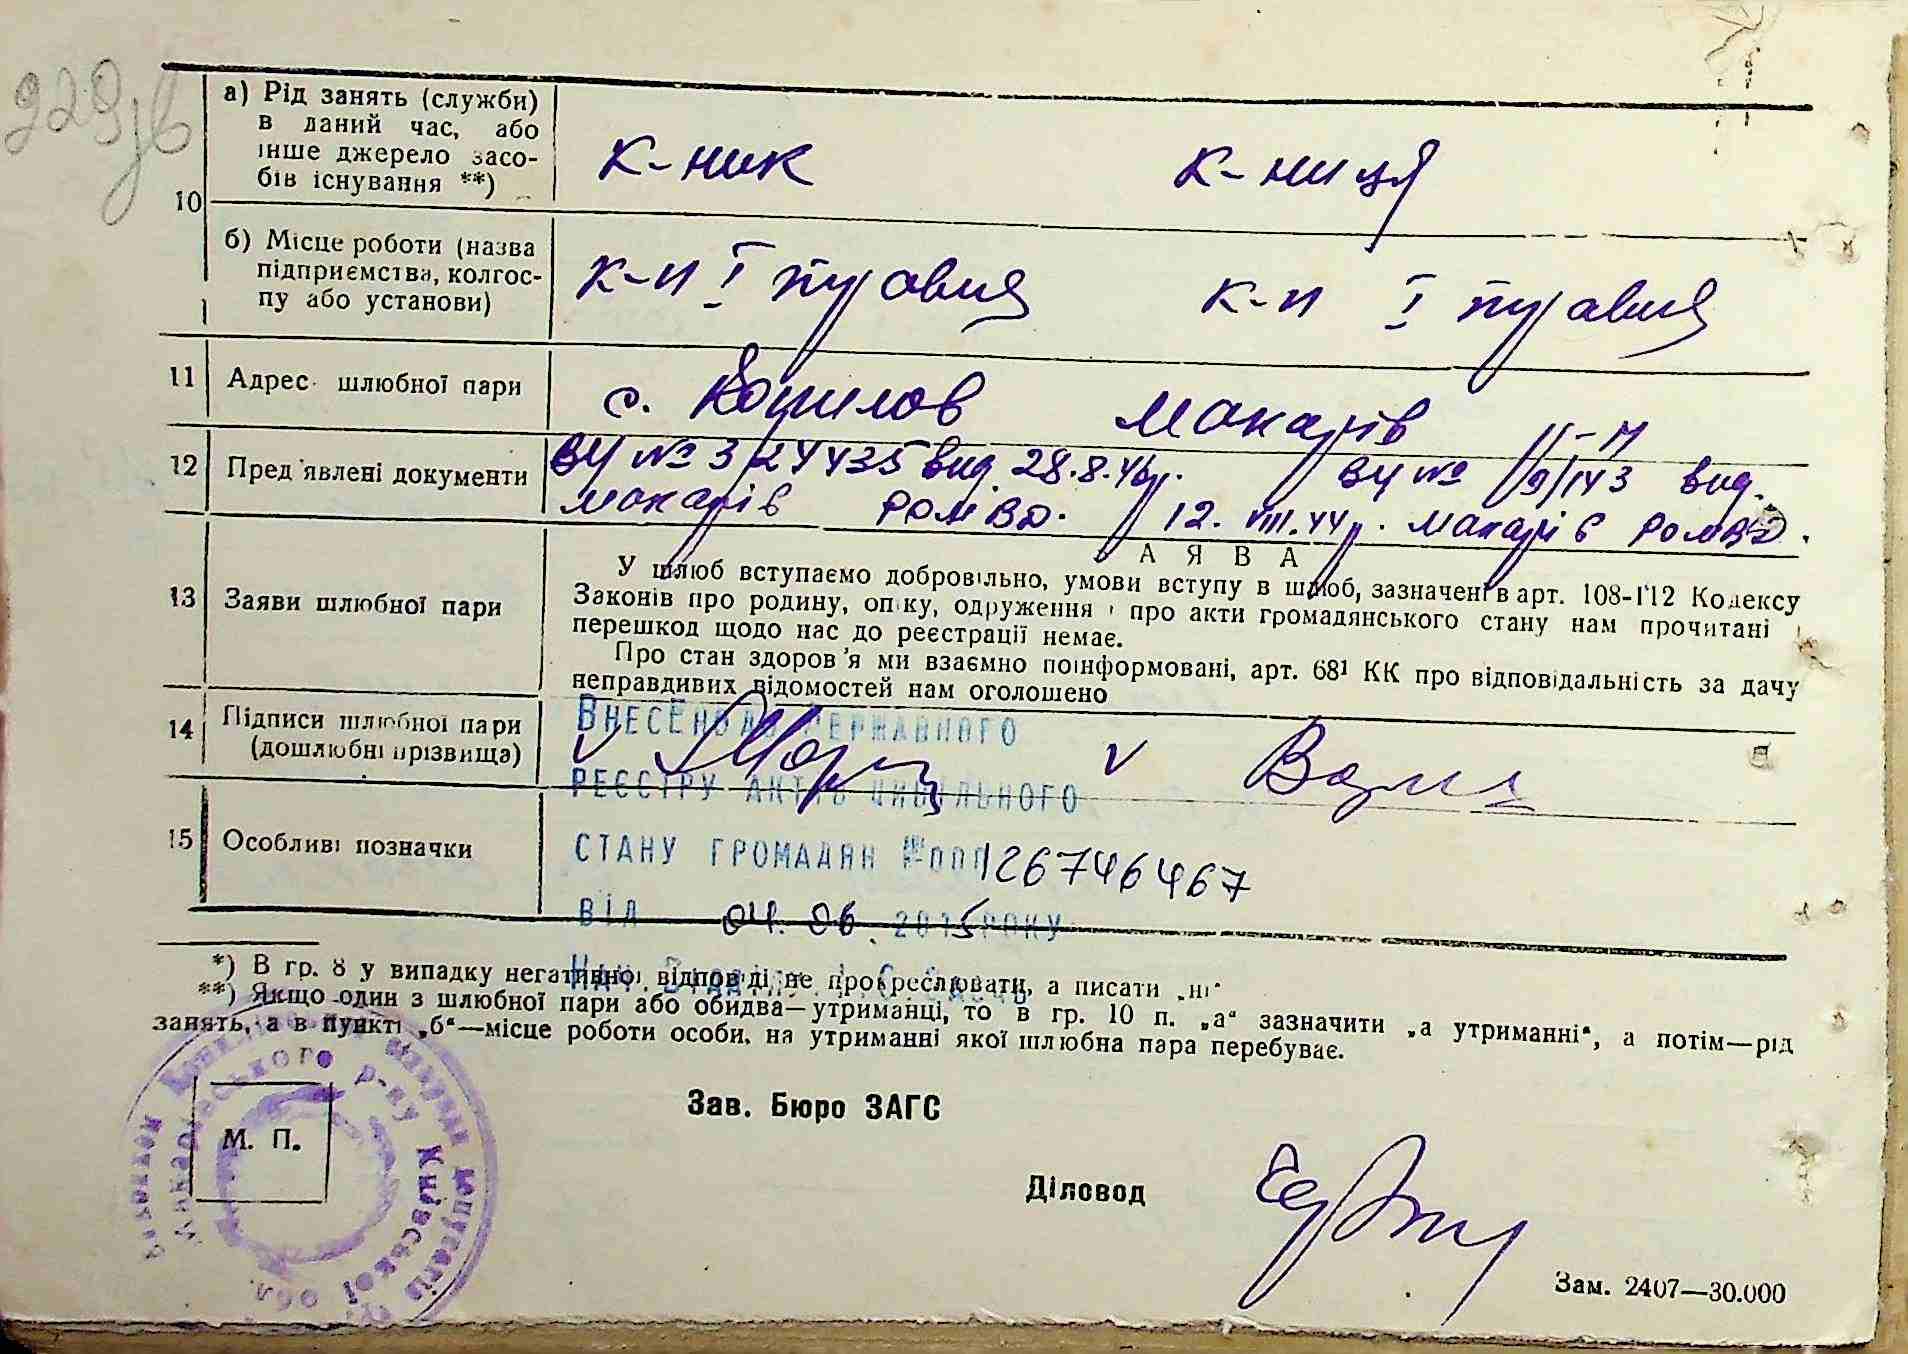 229зв
а) Рід занять (служби)
в даний час, або
інше джерело засо-
бів існування **)
к-ник к-ниця
10
б) Місце роботи (назва
підприємства, колгос-
пу або установи)
к-п І травня к-п І травня
11 Адрес шлюбної пари
с. Копилов Макарів
12 Пред'явлені документи
ВЧ № 324435 вид. 28.8.46р. ВЧ № 9/143 вид.
Макарів РОМВД. 12.VIII.44р. Макарів РОМВД.
АЯВА
13 Заяви шлюбної пари
У шлюб вступаємо добровільно, умови вступу в шлюб, зазначені в арт. 108-112 Кодексу
Законів про родину, опіку, одруження і про акти громадянського стану нам прочитані
перешкод щодо нас до реєстрації немає.
Про стан здоров'я ми взаємно поінформовані, арт. 68¹ КК про відповідальність за дачу
неправдивих відомостей нам оголошено
14 Підписи шлюбної пари
(дошлюбні прізвища)
Внесено до Державного
реєстру актів цивільного
15 Особливі позначки
стану громадян №000126746467
від 04.06.2015 року
*) В гр. 8 у випадку негативної відповіді не прокреслювати, а писати „ні“
**) Якщо один з шлюбної пари або обидва—утриманці, то в гр. 10 п. „а“ зазначити „а утриманні“, а потім—рід
занять, а в пункті „б“—місце роботи особи, на утриманні якої шлюбна пара перебуває.
М. П.
Київської обл.
Зав. Бюро ЗАГС
Діловод
Зам. 2407—30.000